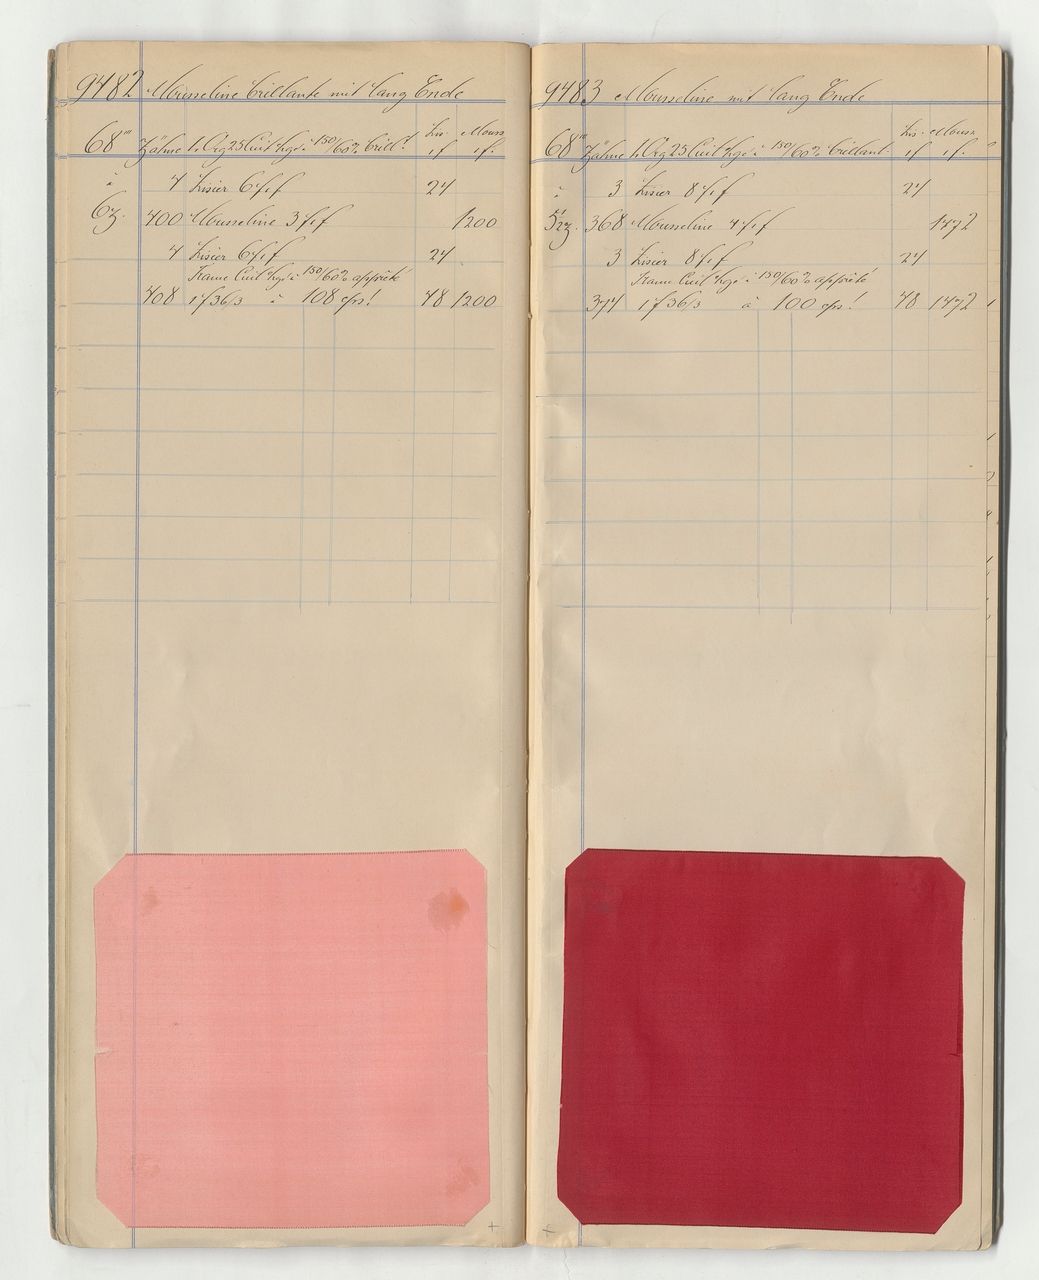 9482 Mousseline brillante mit lang Ende
Lis. Mouss.
68''' Zähne 1r Org 25 Cuit hgé à 150/60% brillt. 1f 1f.
à 4 Lisier 6f1f 24
6z. 400 Mousseline 3f1f 1200
4 Lisier 6f1f 24
Trame Cuit hgé à 150/60% apprêté
408 1f 36/3 à 108 cps! 48 1200
9483 Mousseline mit lang Ende
Lis. Mouss.
68''' Zähne 1r Org 25 Cuit hgé à 150/60% brillant 1f 1f.
à 3 Lisier 8f1f 24
368 Mousseline 4f1f 1472
3 Lisier 8f1f 24
Trame Cuit hgé à 150/60% apprêté
374 1f 36/3 à 100 cps! 48 1472